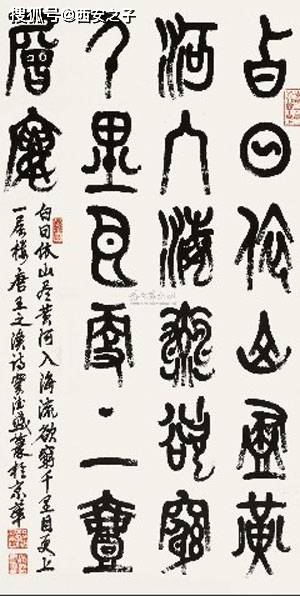 搜狐号@西安之子
白日依山盡黃
河入海流欲窮
千里目更上壹
層樓
白日依山尽黄河入海流欲窮千里目更上
一层楼唐王之渙詩篆於京華